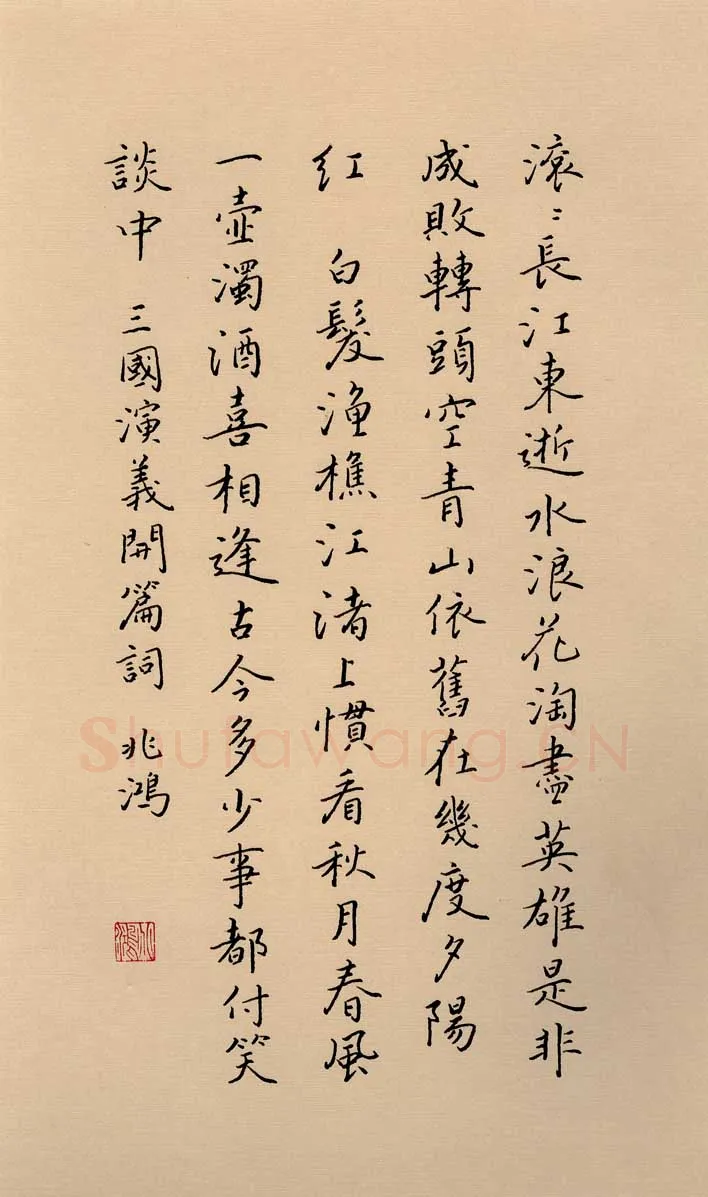 滾〻長江東逝水浪花淘盡英雄是非
成敗轉頭空青山依舊在幾度夕陽
紅 白髮漁樵江渚上慣看秋月春風
一壺濁酒喜相逢古今多少事都付笑
談中 三國演義開篇詞 兆鴻
兆鴻
Shufawang.CN